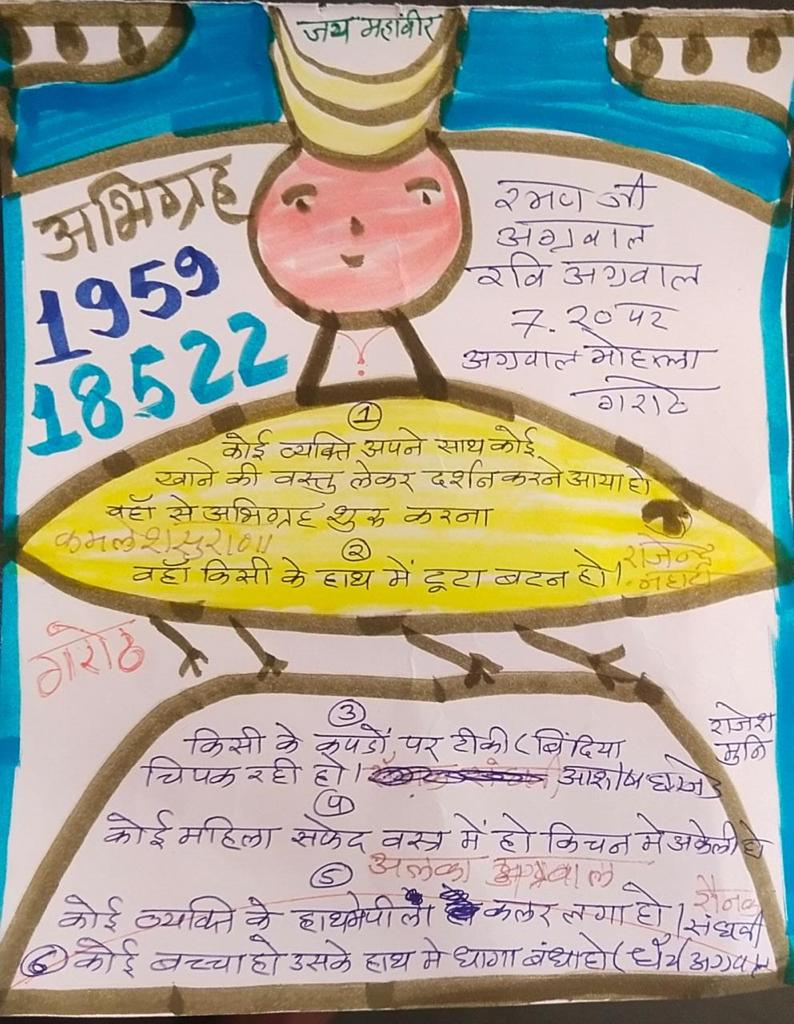 जय महावीर
अभिग्रह
1959
18522
रमण जी
अग्रवाल
रवि अग्रवाल
7.20 पर
अग्रवाल मोहल्ला
गरोठ
①
कोई व्यक्ति अपने साथ कोई
खाने की वस्तु लेकर दर्शन करने आया हो
वहाँ से अभिग्रह शुरू करना
कमलेश सुराणा
②
वहाँ किसी के हाथ में टूटा बटन हो।
राजेन्द्र
गरोठ
③
किसी के कपडों पर टीकी (बिंदिया
चिपक रही हो।
राजेश
मुनि
④
कोई महिला सफेद वस्त्र में हो किचन मे अकेली हो
अलका अग्रवाल
⑤
कोई व्यक्ति के हाथ मे पीला कलर लगा हो।
रौनक
संघवी
⑥ कोई बच्चा हो उसके हाथ मे धागा बंधा हो (धैर्य अग्रवाल